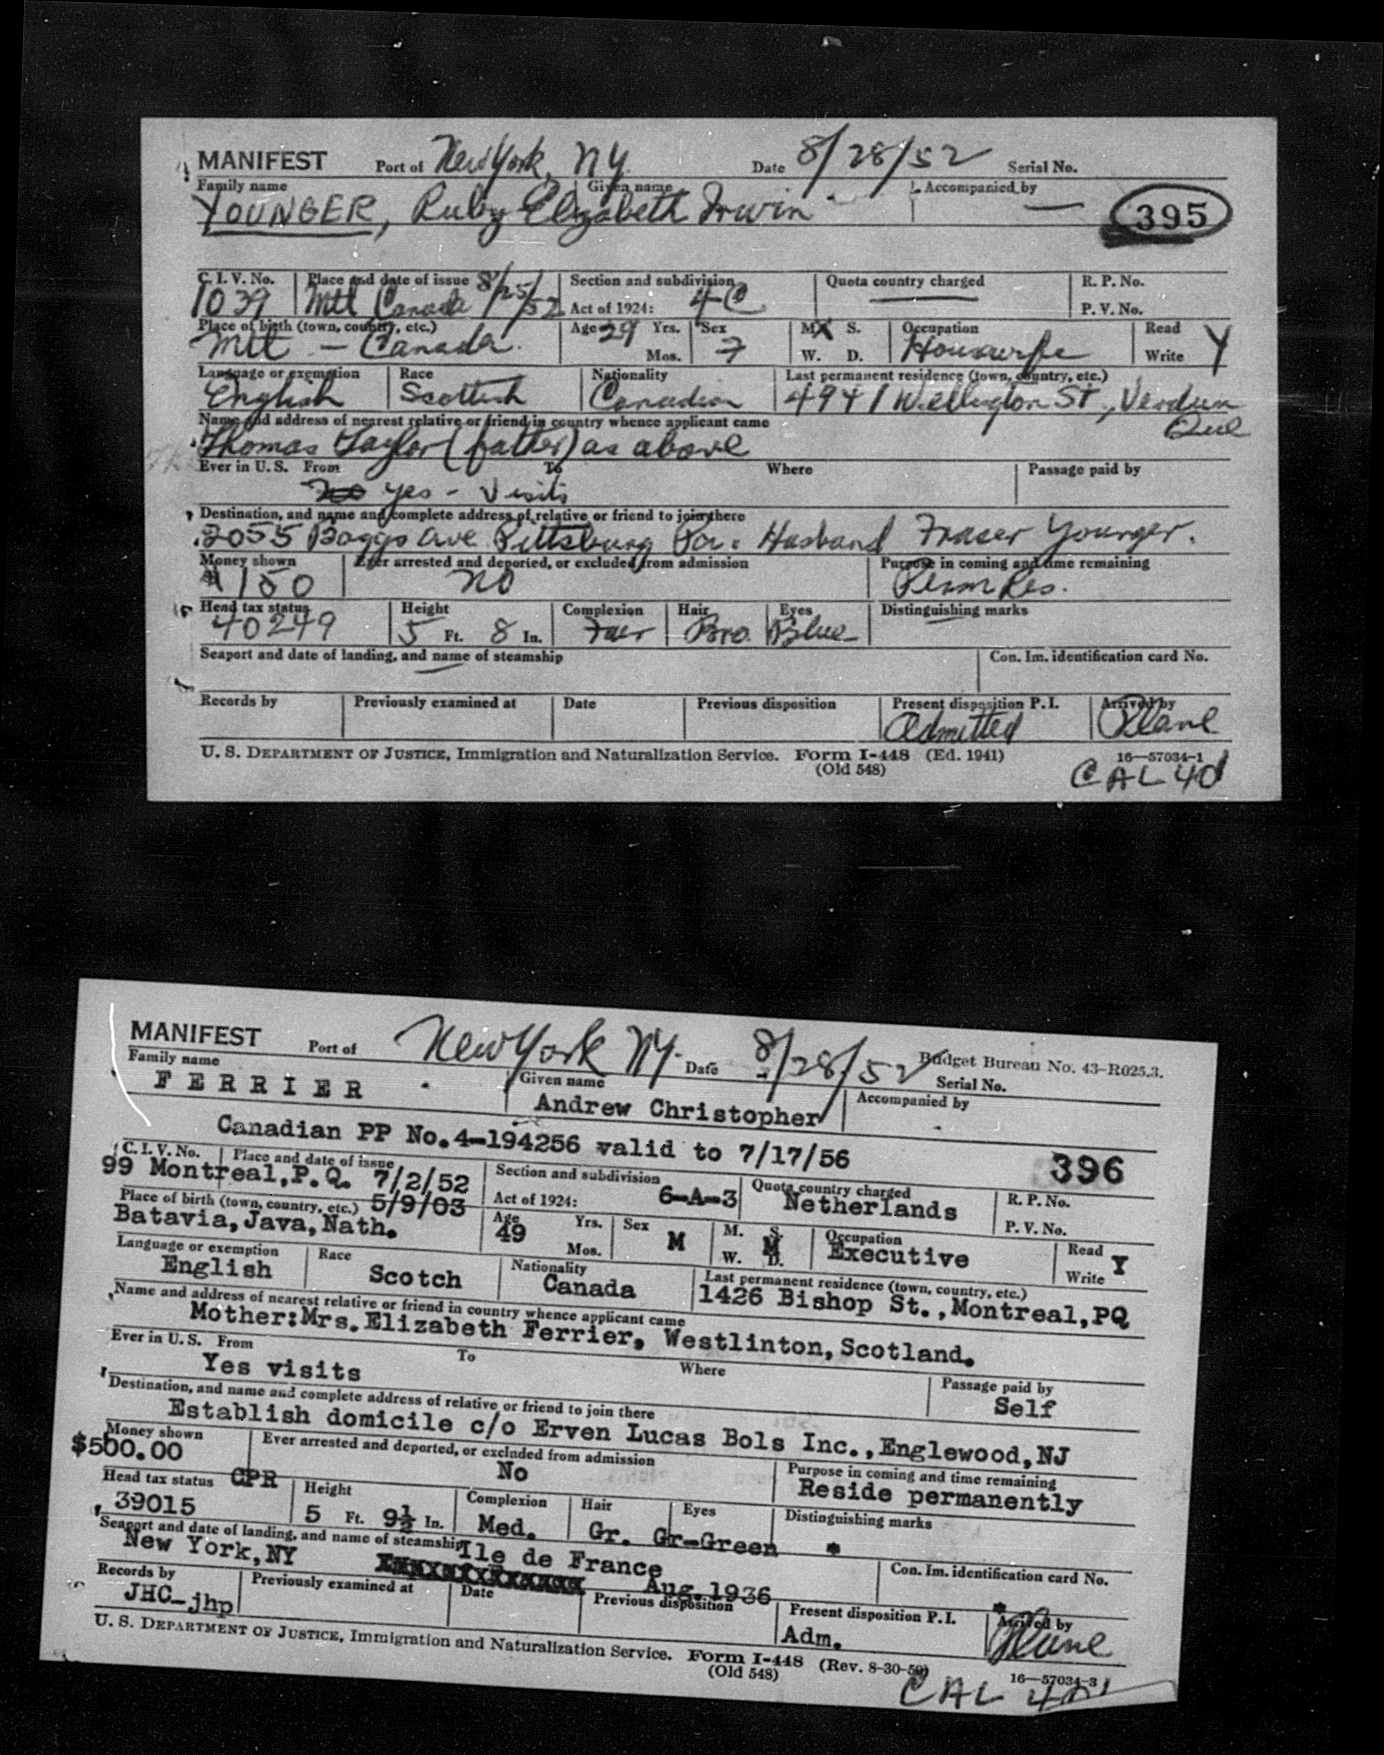 MANIFEST Port of New York, NY Date 8/28/52 Serial No.
Family name Given name Accompanied by
YOUNGER, Ruby Elizabeth Irwin — 395
C. I. V. No. Place and date of issue 8/25/52 Section and subdivision Quota country charged R. P. No.
1039 Mtl Canada Act of 1924: 4-C P. V. No.
Place of birth (town, country, etc.) Age 29 Yrs. Sex M X S. Occupation Read
Mtl - Canada. Mos. F W. D. Housewife Write Y
Language or exemption Race Nationality Last permanent residence (town, country, etc.)
English Scottish Canadian 4941 Wellington St, Verdun
Que
Name and address of nearest relative or friend in country whence applicant came
Thomas Taylor (father) as above
Ever in U. S. From To Where Passage paid by
yes - Visits
Destination, and name and complete address of relative or friend to join there
2055 Boggs Ave Pittsburg Pa. Husband Fraser Younger.
Money shown Ever arrested and deported, or excluded from admission Purpose in coming and time remaining
$150 NO Perm Res.
Head tax status Height Complexion Hair Eyes Distinguishing marks
40249 5 Ft. 8 In. Fair Bro. Blue
Seaport and date of landing, and name of steamship Con. Im. identification card No.
Records by Previously examined at Date Previous disposition Present disposition P. I. Arrived by
Admitted Plane
U. S. DEPARTMENT OF JUSTICE, Immigration and Naturalization Service. Form I-448 (Ed. 1941) 16—57034-1
(Old 548) CAL 401
MANIFEST Port of New York NY. Date 8/28/52 Budget Bureau No. 43-R025.3.
Family name Given name Serial No.
FERRIER Andrew Christopher Accompanied by
Canadian PP No.4-194256 valid to 7/17/56 396
C. I. V. No. Place and date of issue Section and subdivision Quota country charged R. P. No.
99 Montreal,P.Q. 7/2/52 Act of 1924: 6-A-3 Netherlands P. V. No.
Place of birth (town, country, etc.) 5/9/03 Age Yrs. Sex M. S. Occupation Read
Batavia,Java,Nath. 49 Mos. M W. M D. Executive Write Y
Language or exemption Race Nationality Last permanent residence (town, country, etc.)
English Scotch Canada 1426 Bishop St.,Montreal,PQ
Name and address of nearest relative or friend in country whence applicant came
Mother:Mrs.Elizabeth Ferrier, Westlinton,Scotland.
Ever in U. S. From To Where Passage paid by
Yes visits Self
Destination, and name and complete address of relative or friend to join there
Establish domicile c/o Erven Lucas Bols Inc.,Englewood,NJ
Money shown Ever arrested and deported, or excluded from admission Purpose in coming and time remaining
$500.00 No Reside permanently
Head tax status CPR Height Complexion Hair Eyes Distinguishing marks
39015 5 Ft. 9½ In. Med. Gr. Gr-Green *
Seaport and date of landing, and name of steamship Con. Im. identification card No.
New York,NY Ile de France
Aug.1936
Records by Previously examined at Date Previous disposition Present disposition P. I. Arrived by
JHC-jhp Adm. Plane
U. S. DEPARTMENT OF JUSTICE, Immigration and Naturalization Service. Form I-448 (Rev. 8-30-50) 16—57034-3
(Old 548) CAL 401